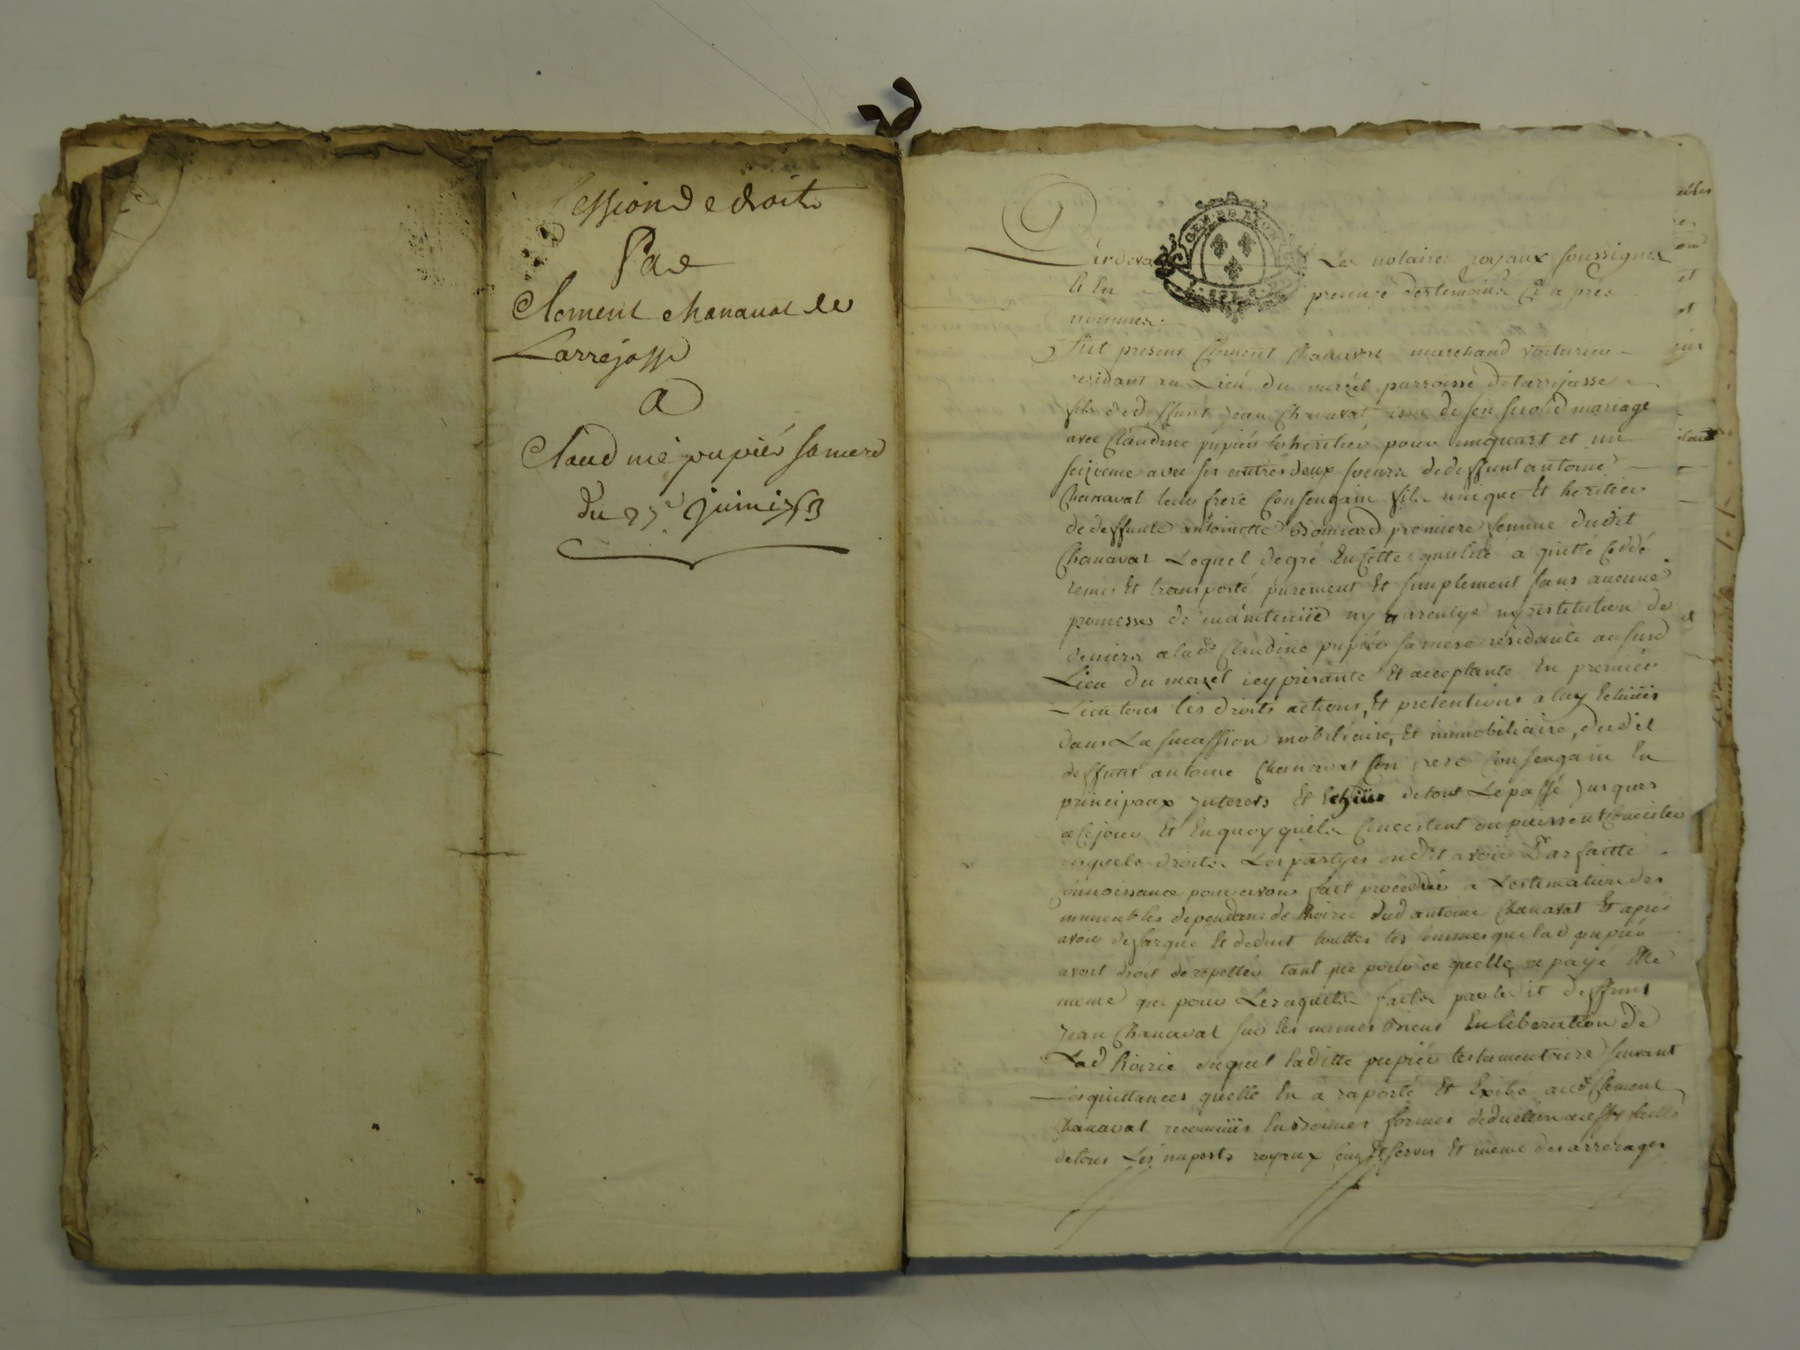 Cession de droits
Par
Clement chanavat de
Larrajasse
A
Claudine pupiér sa mere
du juin
GEN DE LYON
Pardevant Les notaires royaux soussignes
et En presence des temoins Cy apres
nommes
Fut present Clement Chanavat marchand voiturier
residant au Lieu du mazel parroisse de larrajasse
fils de deffunt Jean Chanavat issu de son second mariage
avec Claudine pupier et heritier pour un quart et un
seizieme avec ses autres deux soeurs de deffunt antoine
Chanavat leur frere Consenguin fils unique Et heritier
de deffunte antoinette premiere femme dudit
Chanavat Lequel de gré En Cette qualité a quitté Ceddé
remis Et transporté purement Et simplement sans aucune
promesses de maintenüe ny garentye ny restitution de
deniers a lad Claudine pupier sa mere residante au susd
Lieu du mazel icy presante Et acceptante En premier
Lieu tous les droits actions, Et pretentions a luy Echües
dans La sucession mobiliaire, Et immobiliaire, dudit
deffunt antoine Chanavat son frere Consenguin En
principaux Interets Et Echüs de tout Le passé Jusques
a Ce jour Et En quoy quils Concistent ou puissent Concister
desquels droits Les partyes ont dit avoir Parfaitte
Connoissance pour avoir fait proceddé a Lestimation des
immeubles dependans de lhoirie dud antoine Chanavat Et aprés
avoir defalqué Et deduit touttes les sommes que lad pupiér
avoit droit de repetter tant pour ce quelle a payé Elle
meme que pour Les aquits faits par ledit deffunt
Jean Chanavat sur les memes biens En liberation de
Lad hoirie duquel laditte pupiér testamentaire suivant
Les quittances quelle En a raporté Et Exibé aud Clement
Chanavat reconnües En bonnes formes
de tous Les imposts royaux cens Et servis Et meme des arrerages